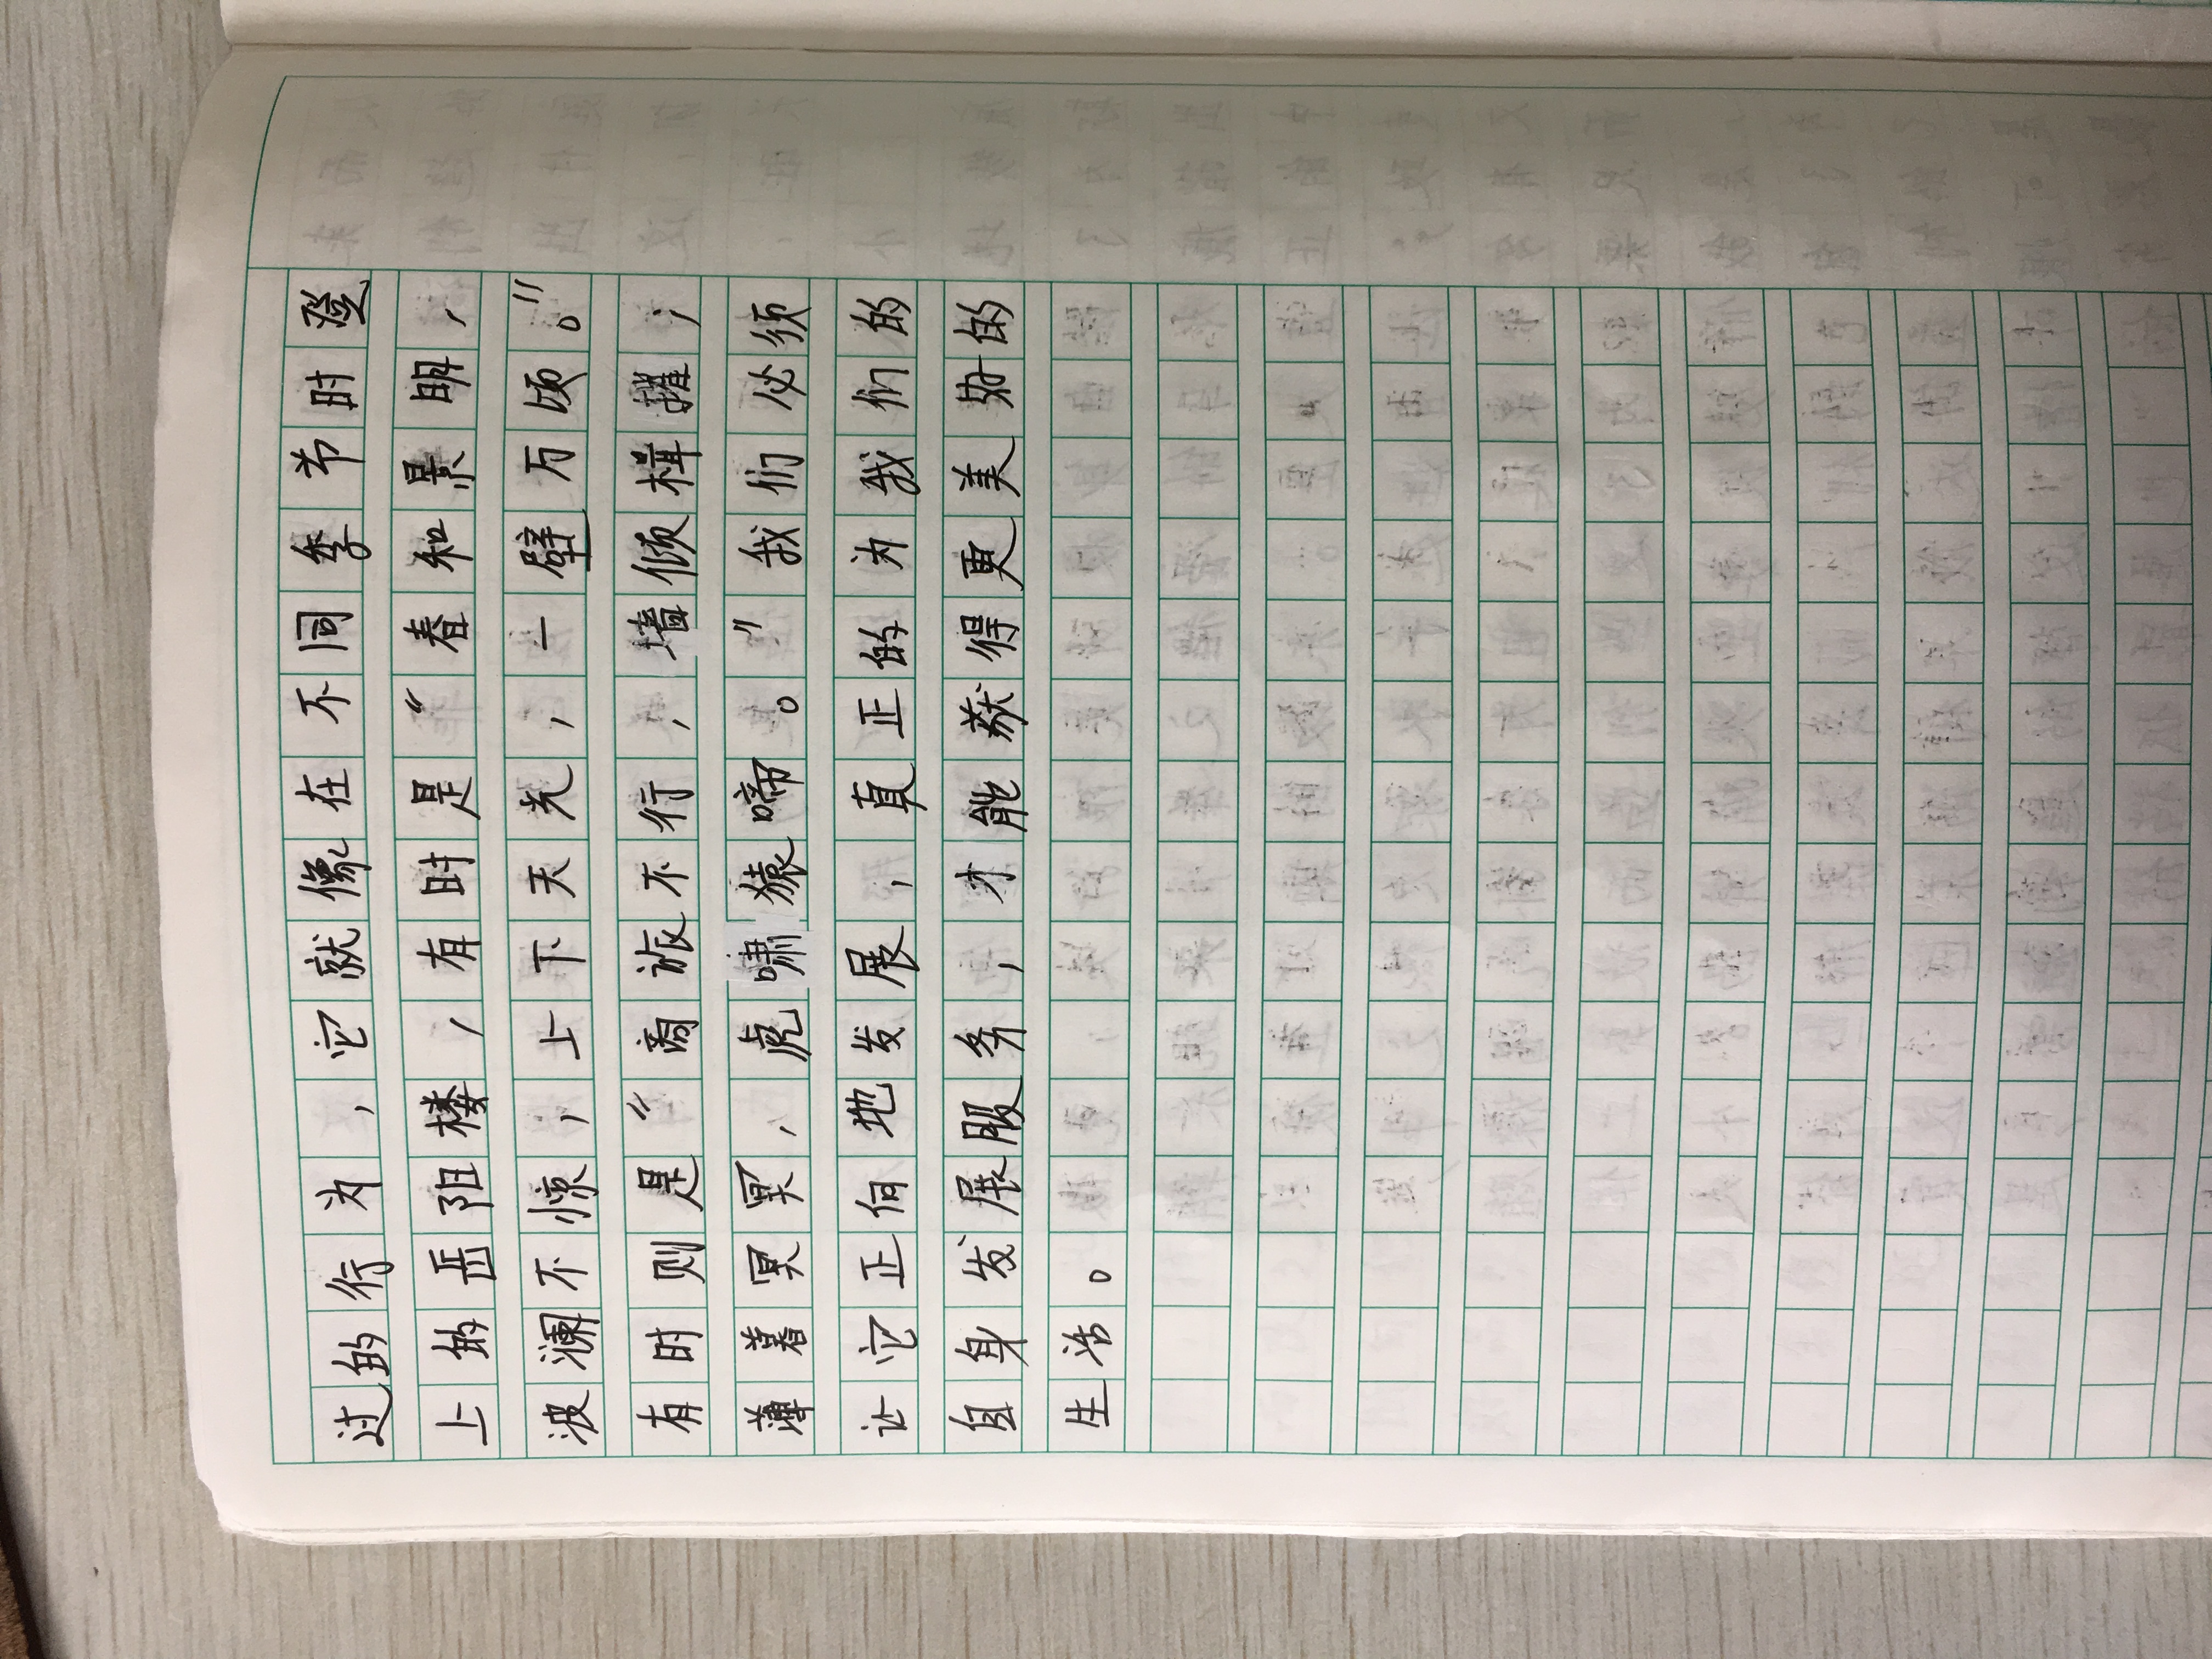 过的行为，它就像在不同季节时登
上的岳阳楼，有时是“春和景明，
波澜不惊，上下天光，一壁万顷。”
有时则是“商旅不行，墙倾楫摧，
薄暮冥冥，虎啸猿啼。”我们必须
让它正向地发展，真正的为我们的
自身发展服务，才能获得更美好的
生活。